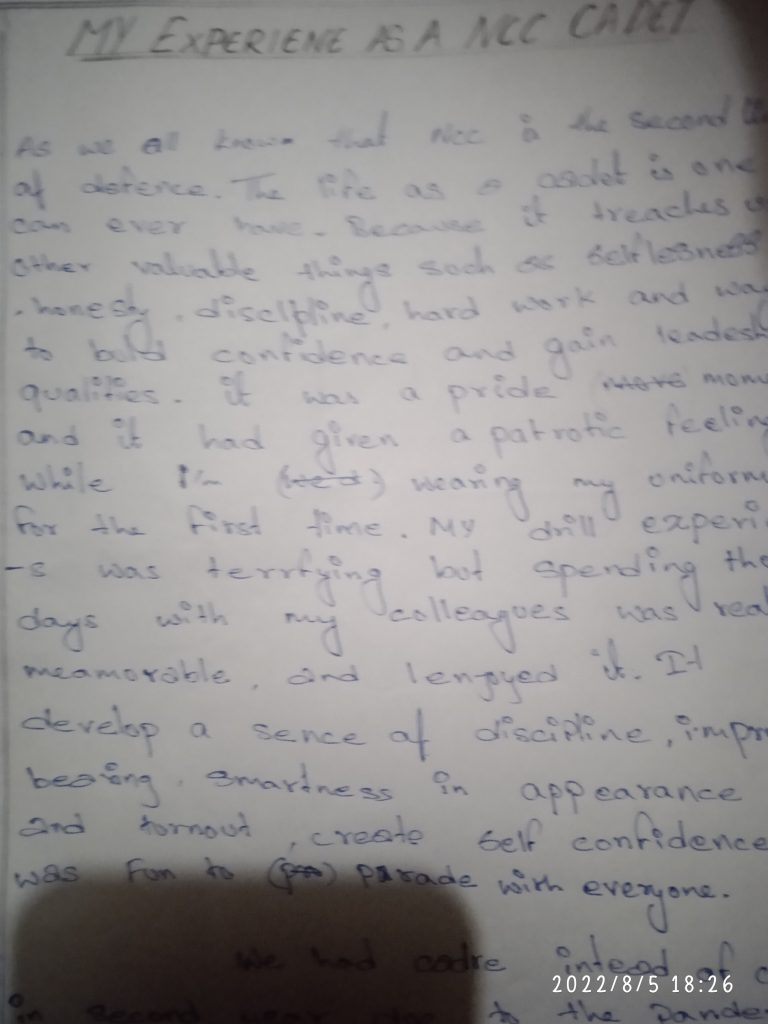 MY EXPERIENE AS A NCC CADET
As we all known that ncc is the second
of defence. The life as a casdet is one
can ever have. Because it treaches
other valuable things such as selflessness
, honesty, discipline, hard work and way
to build confidence and gain leadesh
qualities. it was a pride mome
and it had given a patrotic feeling
while I'm wearing my uniform
for the first time. My drill experi
-s was terrfying but spending the
days with my colleagues was real
meamorable, and I enjoyed it. It
develop a sence of discipline, impro
bearing, smartness in appearance
and tornout, create self confidence
was fun to parade with everyone.
We had cadre intead of c
in second year due to the Pande
2022/8/5 18:26